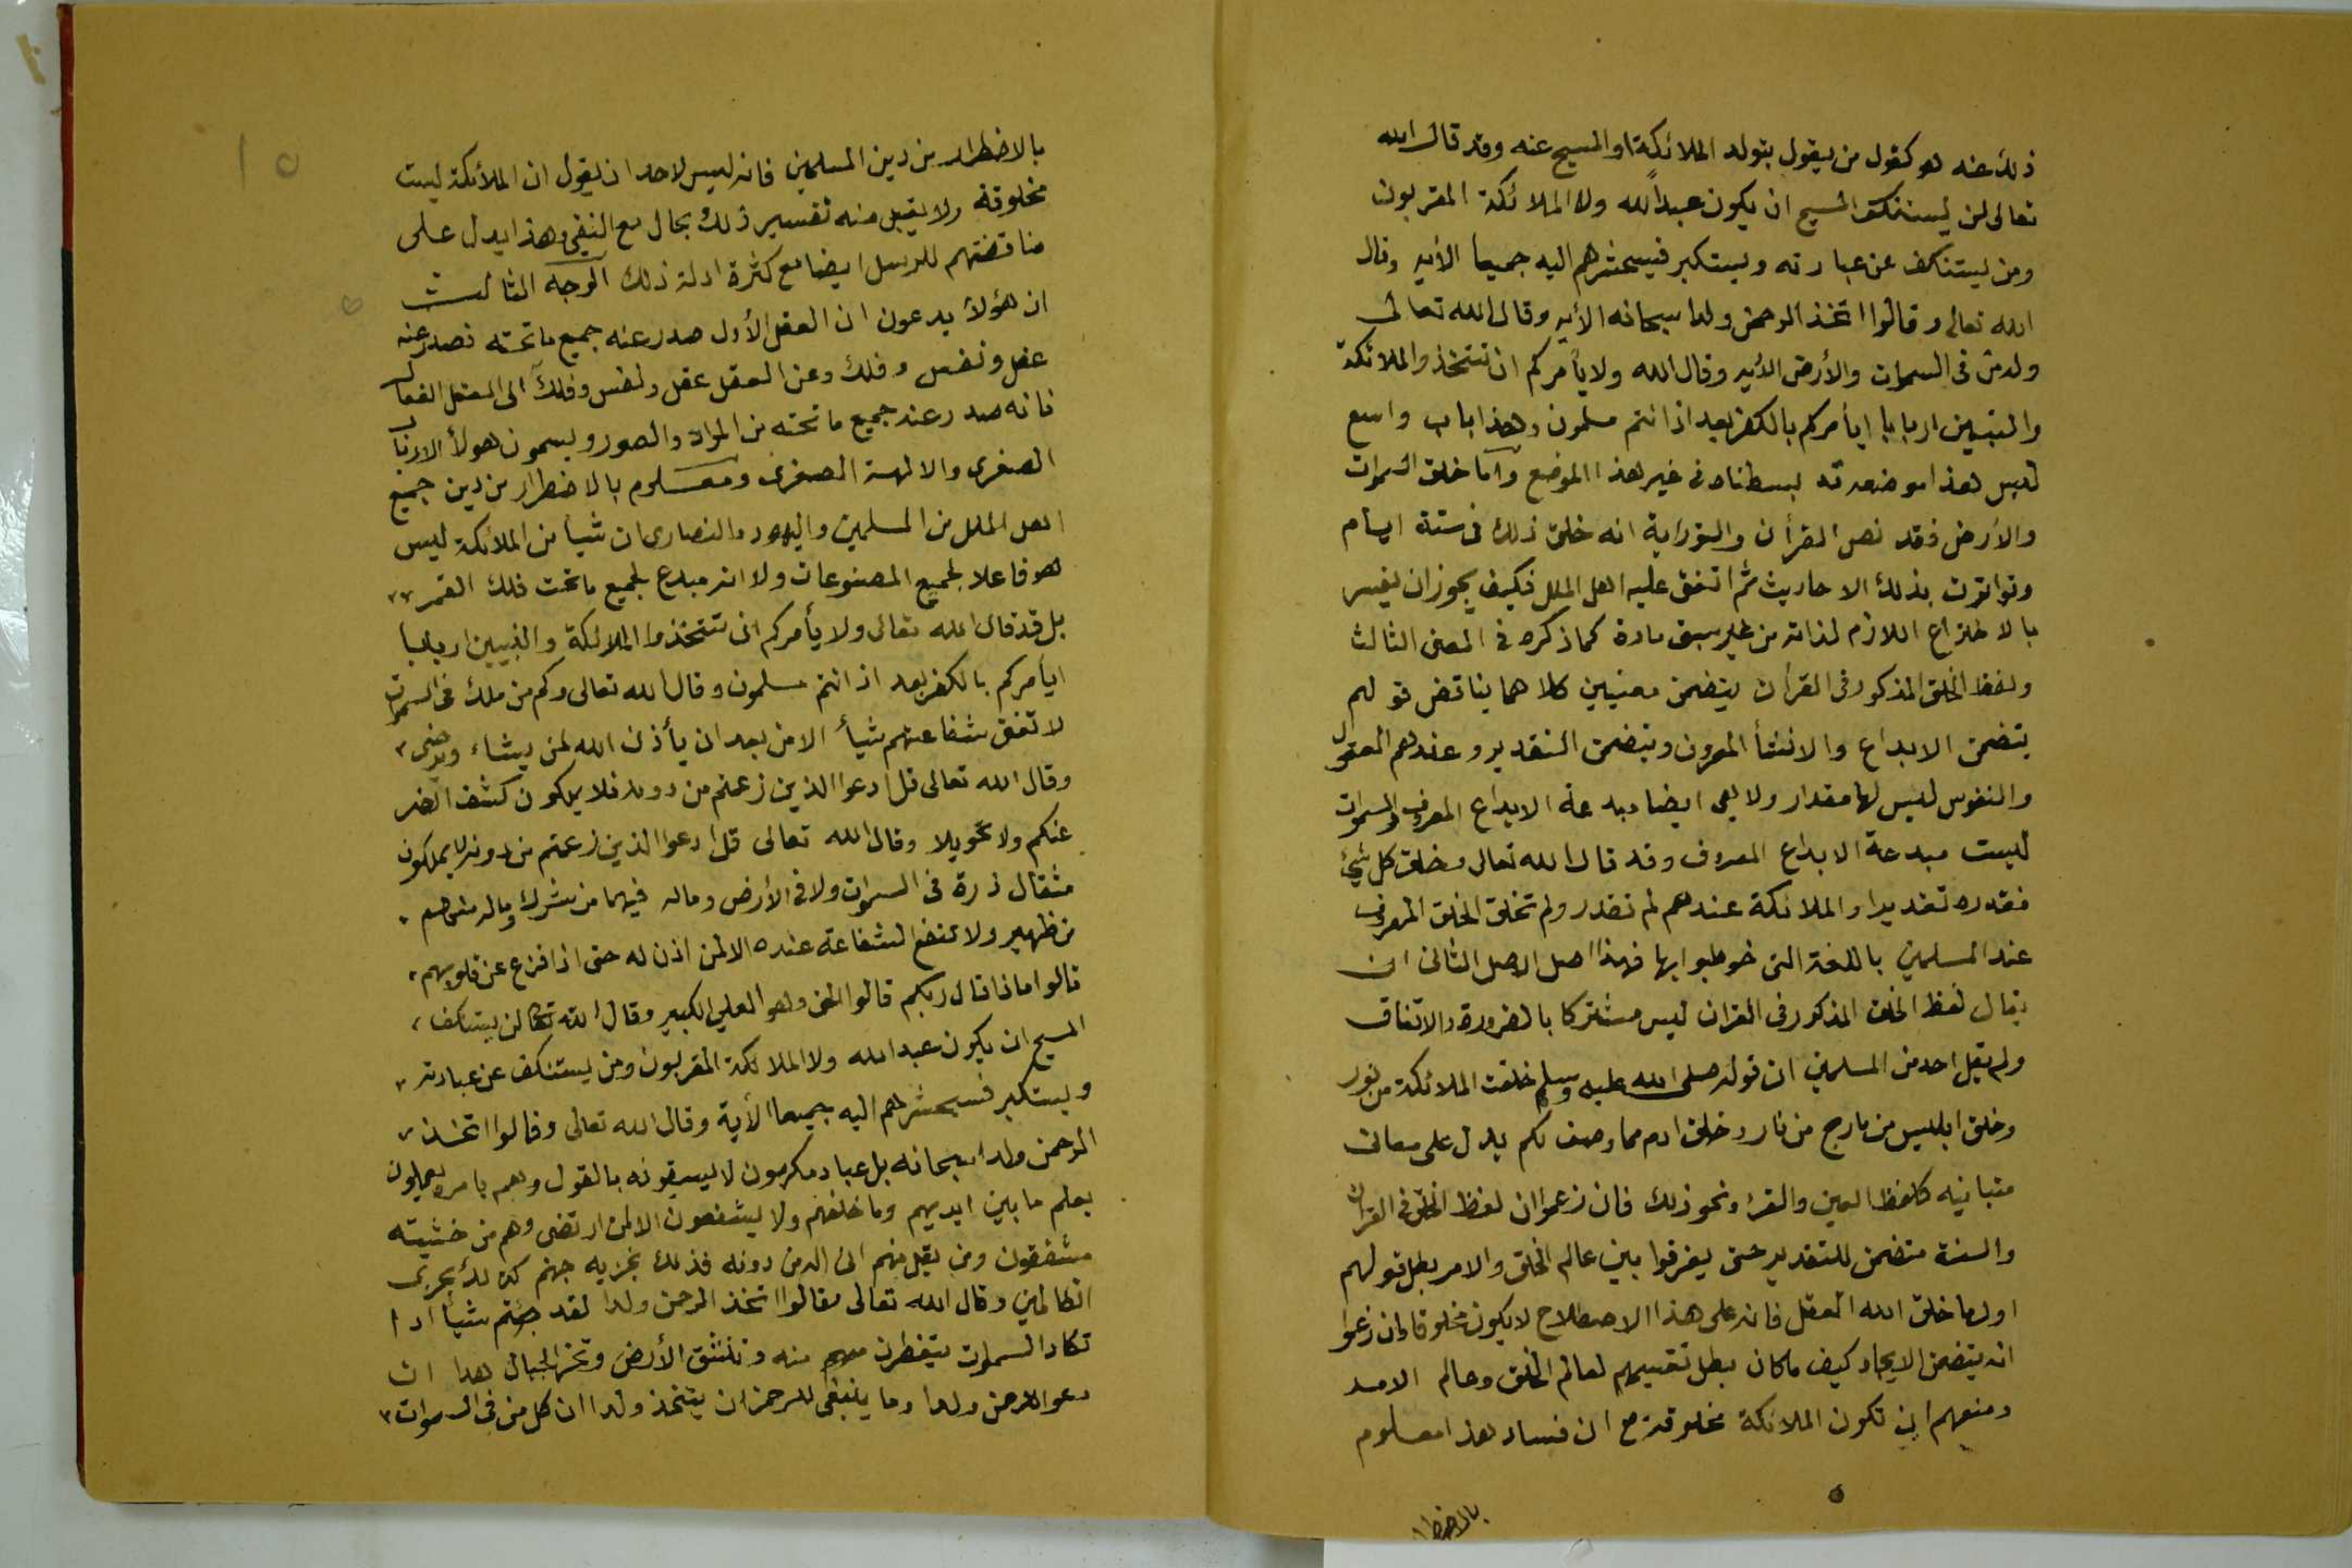 ذلك عنه هو كقول من يقول بتولد الملائكة او المسيح عنه وقد قال الله
تعالى لن يستنكف المسيح ان يكون عبداً لله ولا الملائكة المقربون
ومن يستنكف عن عبادته ويستكبر فسيحشرهم اليه جميعا الأيه وقال
الله تعالى وقالوا اتخذ الرحمن ولدا سبحانه الأيه وقال الله تعالى
وله من فى السموات والأرض الأيه وقال الله ولا يأمركم ان تتخذوا الملائكة
والنبيين اربابا ايأمركم بالكفر بعد اذ انتم مسلمون وهذا باب واسع
ليس هذا موضعه قد بسطناه فى غير هذا الموضع وأما خلق السموات
والأرض فقد نص القرأن والتوراية انه خلق ذلك فى ستة ايام
وتواترت بذلك الاحاديث ثم اتفق عليه اهل الملل فكيف يجوز ان يفسر
بالاختراع اللازم لذاته من غير سبق مادة كما ذكره فى المعنى الثالث
ولفظ الخلق المذكور فى القرأن يتضمن معنيين كلاهما يناقض قولهم
يتضمن الابداع والانشأ المعروف ويتضمن التقدير وعندهم العقول
والنفوس ليس لها مقدار ولا هى ايضا مبدعة الابداع المعروف والسموات
ليست مبدعة الابداع المعروف وقد قال الله تعالى وخلق كل شئ
فقدره تقديرا والملائكة عندهم لم تقدر ولم تخلق الخلق المعروف
عند المسلمين باللغة التى خوطبوا بها فهذا اصل الاصل الثانى ان
يقال لفظ الخلق المذكور فى القران ليس مشتركا بالضرورة والاتفاق
ولم يقل احد من المسلمين ان قوله صلى الله عليه وسلم خلقت الملائكة من نور
وخلق ابليس من مارج من نار وخلق ادم مما وصف لكم يدل على معان
متباينيه كلفظ العين والقرء ونحو ذلك فان زعموا ان لفظ الخلق فى القرأن
والسنة متضمن للتقدير حتى يفرقوا بين عالم الخلق والامر بطل قولهم
اول ما خلق الله العقل فانه على هذا الاصطلاح لا يكون مخلوقا وان زعموا
انه يتضمن الايجاد كيف ما كان بطل تقسيمهم لعالم الخلق وعالم الامر
ومنعهم ان تكون الملائكة مخلوقة مع ان فساد هذا معلوم
بالاضطرا
١٥
بالاضطرار من دين المسلمين فانه ليس لاحد ان يقول ان الملائكة ليست
مخلوقة ولا يقبل منه تفسير ذلك بحال مع النفى وهذا يدل على
مناقضتهم للرسل ايضا مع كثرة ادلة ذلك الوجه الثالث
ان هؤلأ يدعون ان العقل الأول صدر عنه جميع ما تحته فصدر عنه
عقل ونفس وفلك وعن العقل عقل ونفس وفلك الى العقل الفعال
فانه صدر عنه جميع ما تحته من المواد والصور ويسمون هولأ الارباب
الصغرى والالهة الصغرى ومعلوم بالاضطرار من دين جميع
اهل الملل من المسلمين واليهود والنصارى ان شيأ من الملائكة ليس
هو فاعلا لجميع المصنوعات ولا انه مبدع لجميع ما تحت فلك القمر
بل قد قال الله تعالى ولا يأمركم ان تتخذوا الملائكة والنبيين اربابا
ايأمركم بالكفر بعد اذ انتم مسلمون وقال الله تعالى وكم من ملك فى السموات
لا تغنى شفاعتهم شيأ الا من بعد ان يأذن الله لمن يشاء ويرضى
وقال الله تعالى قل ادعوا الذين زعمتم من دونه فلا يملكون كشف الضر
عنكم ولا تحويلا وقال الله تعالى قل ادعوا الذين زعمتم من دونه لا يملكون
مثقال ذرة فى السموات ولا فى الأرض وماله فيهما من شرك وماله منهم
من ظهير ولا تنفع الشفاعة عنده الا لمن اذن له حتى اذا فزع عن قلوبهم
قالوا ماذا قال ربكم قالوا الحق وهو العلى الكبير وقال الله تعالى لن يستنكف
المسيح ان يكون عبدا لله ولا الملائكة المقربون ومن يستنكف عن عبادته
ويستكبر فسيحشرهم اليه جميعا الأية وقال الله تعالى وقالوا اتخذ
الرحمن ولدا سبحانه بل عباد مكرمون لا يسبقونه بالقول وهم بامره يعملون
يعلم ما بين ايديهم وما خلفهم ولا يشفعون الا لمن ارتضى وهم من خشيته
مشفقون ومن يقل منهم انى اله من دونه فذلك نجزيه جهنم كذلك نجزى
الظالمين وقال الله تعالى وقالوا اتخذ الرحمن ولدا لقد جئتم شيأ ادا
تكاد السموات يتفطرن منه وتنشق الأرض وتخر الجبال هدا ان
دعوا للرحمن ولدا وما ينبغى للرحمن ان يتخذ ولدا ان كل من فى السموات